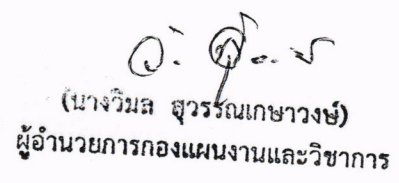 (นางวิมล สุวรรณเกษาวงษ์)
ผู้อำนวยการกองแผนงานและวิชาการ